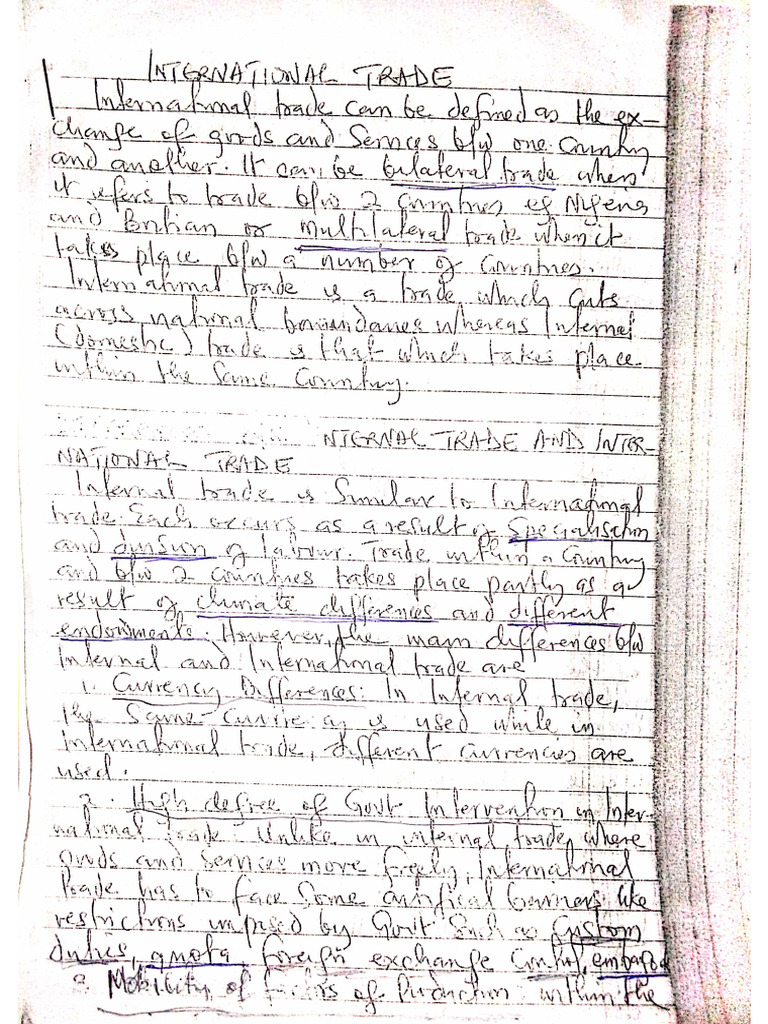 INTERNATIONAL TRADE
International trade can be defined as the ex-
change of goods and Services b/w one Country
and another. It can be bilateral trade when
it refers to trade b/w 2 Countries eg Nigeria
and Britian or multilateral trade when it
takes place b/w a number of Countries.
International trade is a trade which Cuts
across national boundaries whereas Internal
(domestic) trade is that which takes place
within the Same Country.
NTERNAL TRADE AND INTER-
NATIONAL TRADE
Internal trade is Similar to International
trade. Each occurs as a result of Specialisation
and division of labour. Trade within a Country
and b/w 2 Countries takes place partly as a
result of climate differences and different
endowments. However, the main differences b/w
Internal and International trade are
1. Currency Differences: In Internal trade,
the Same is used while in
international trade, different currencies are
used.
2. High degree of Govt Intervention in Inter-
national trade: Unlike in internal trade, where
goods and services move freely, International
trade has to face Some artifical barriers like
restrictions imposed by Govt Such as Custom
duties, quota, foreign exchange Control, embargo
3. Mobility of factors of Production: within the